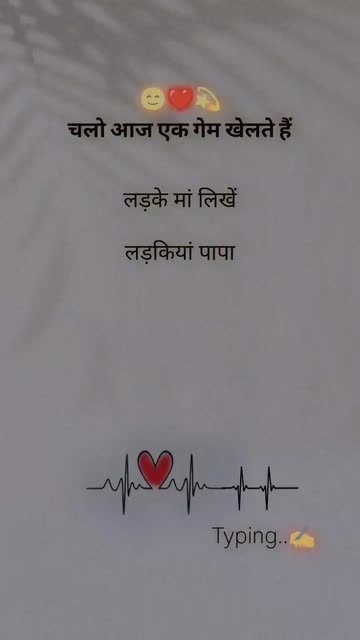 😊❤️💫
चलो आज एक गेम खेलते हैं
लड़के मां लिखें
लड़कियां पापा
Typing..✍️